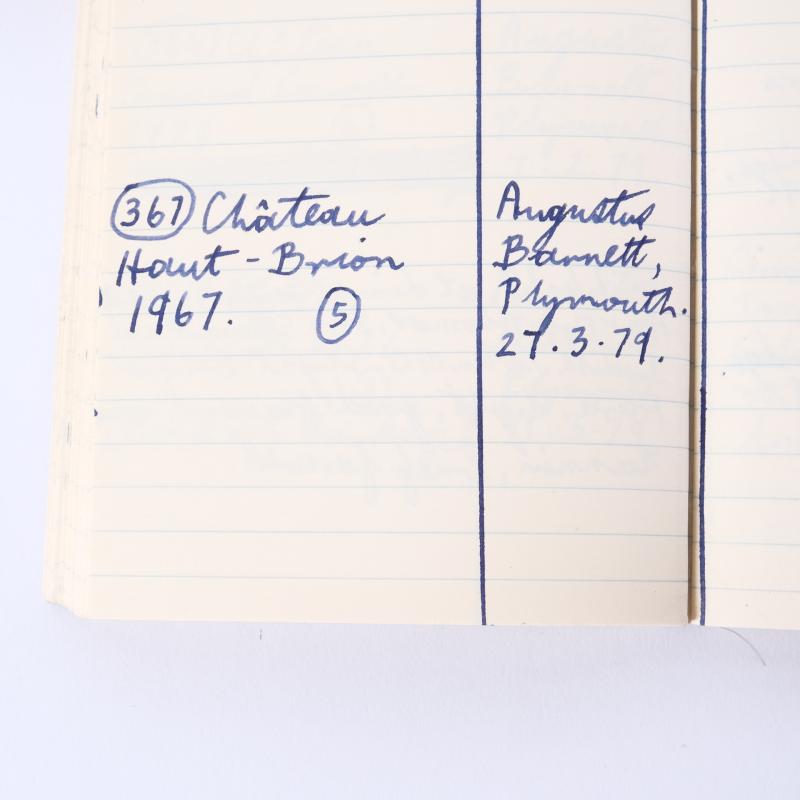 367 Château
Haut-Brion
1967. 5
Augustus
Barnett,
Plymouth.
27.3.79.